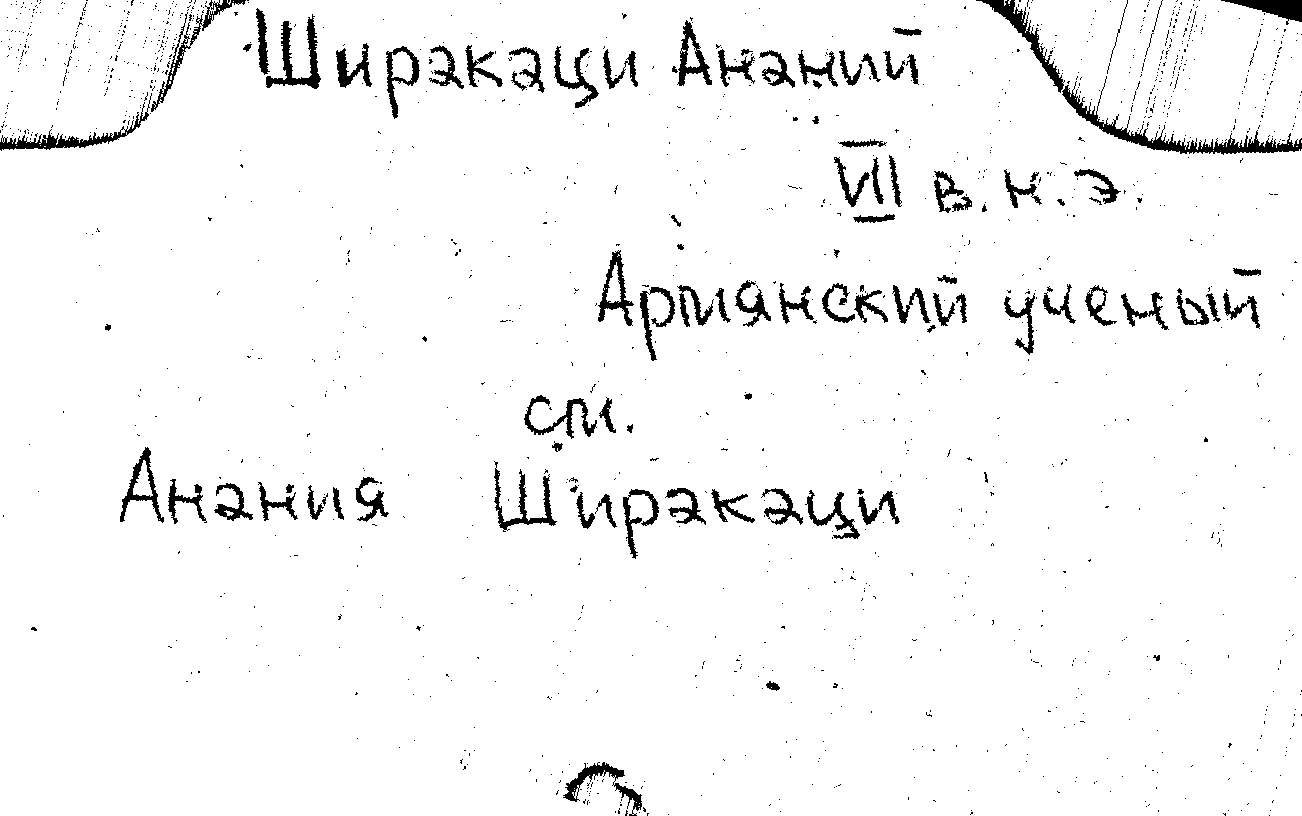 Ширакаци Ананий
VII в. н. э.
Армянский ученый
см.
Анания Ширакаци